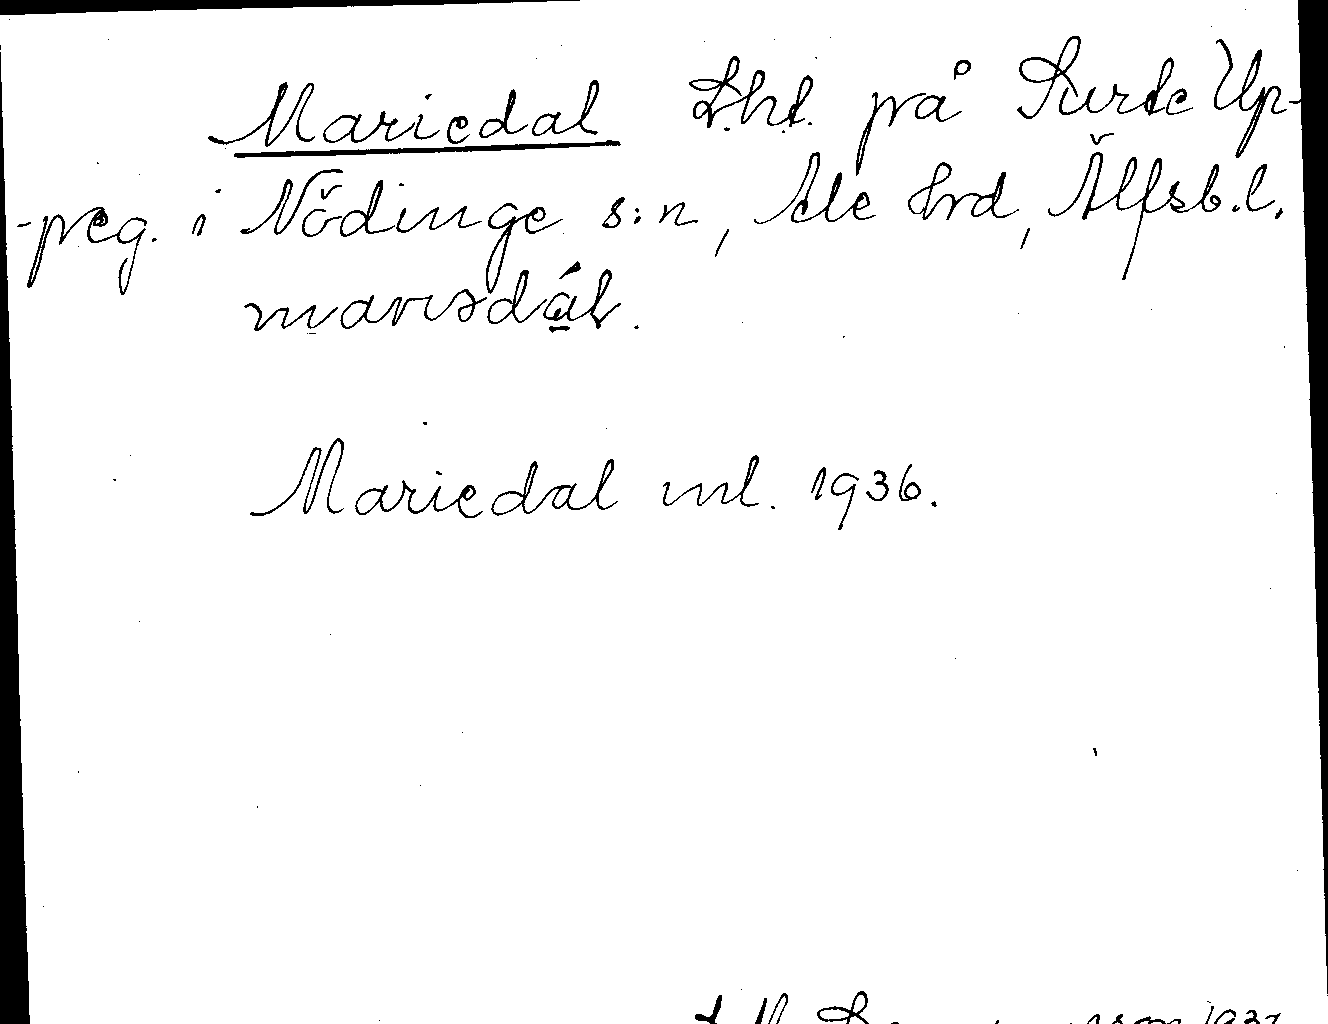 Mariedal L.ht. på Surte Up-
-peg. i Nödinge s:n, Ale hrd, Älfsb.l.
marıədál.
Mariedal ml. 1936.
1937